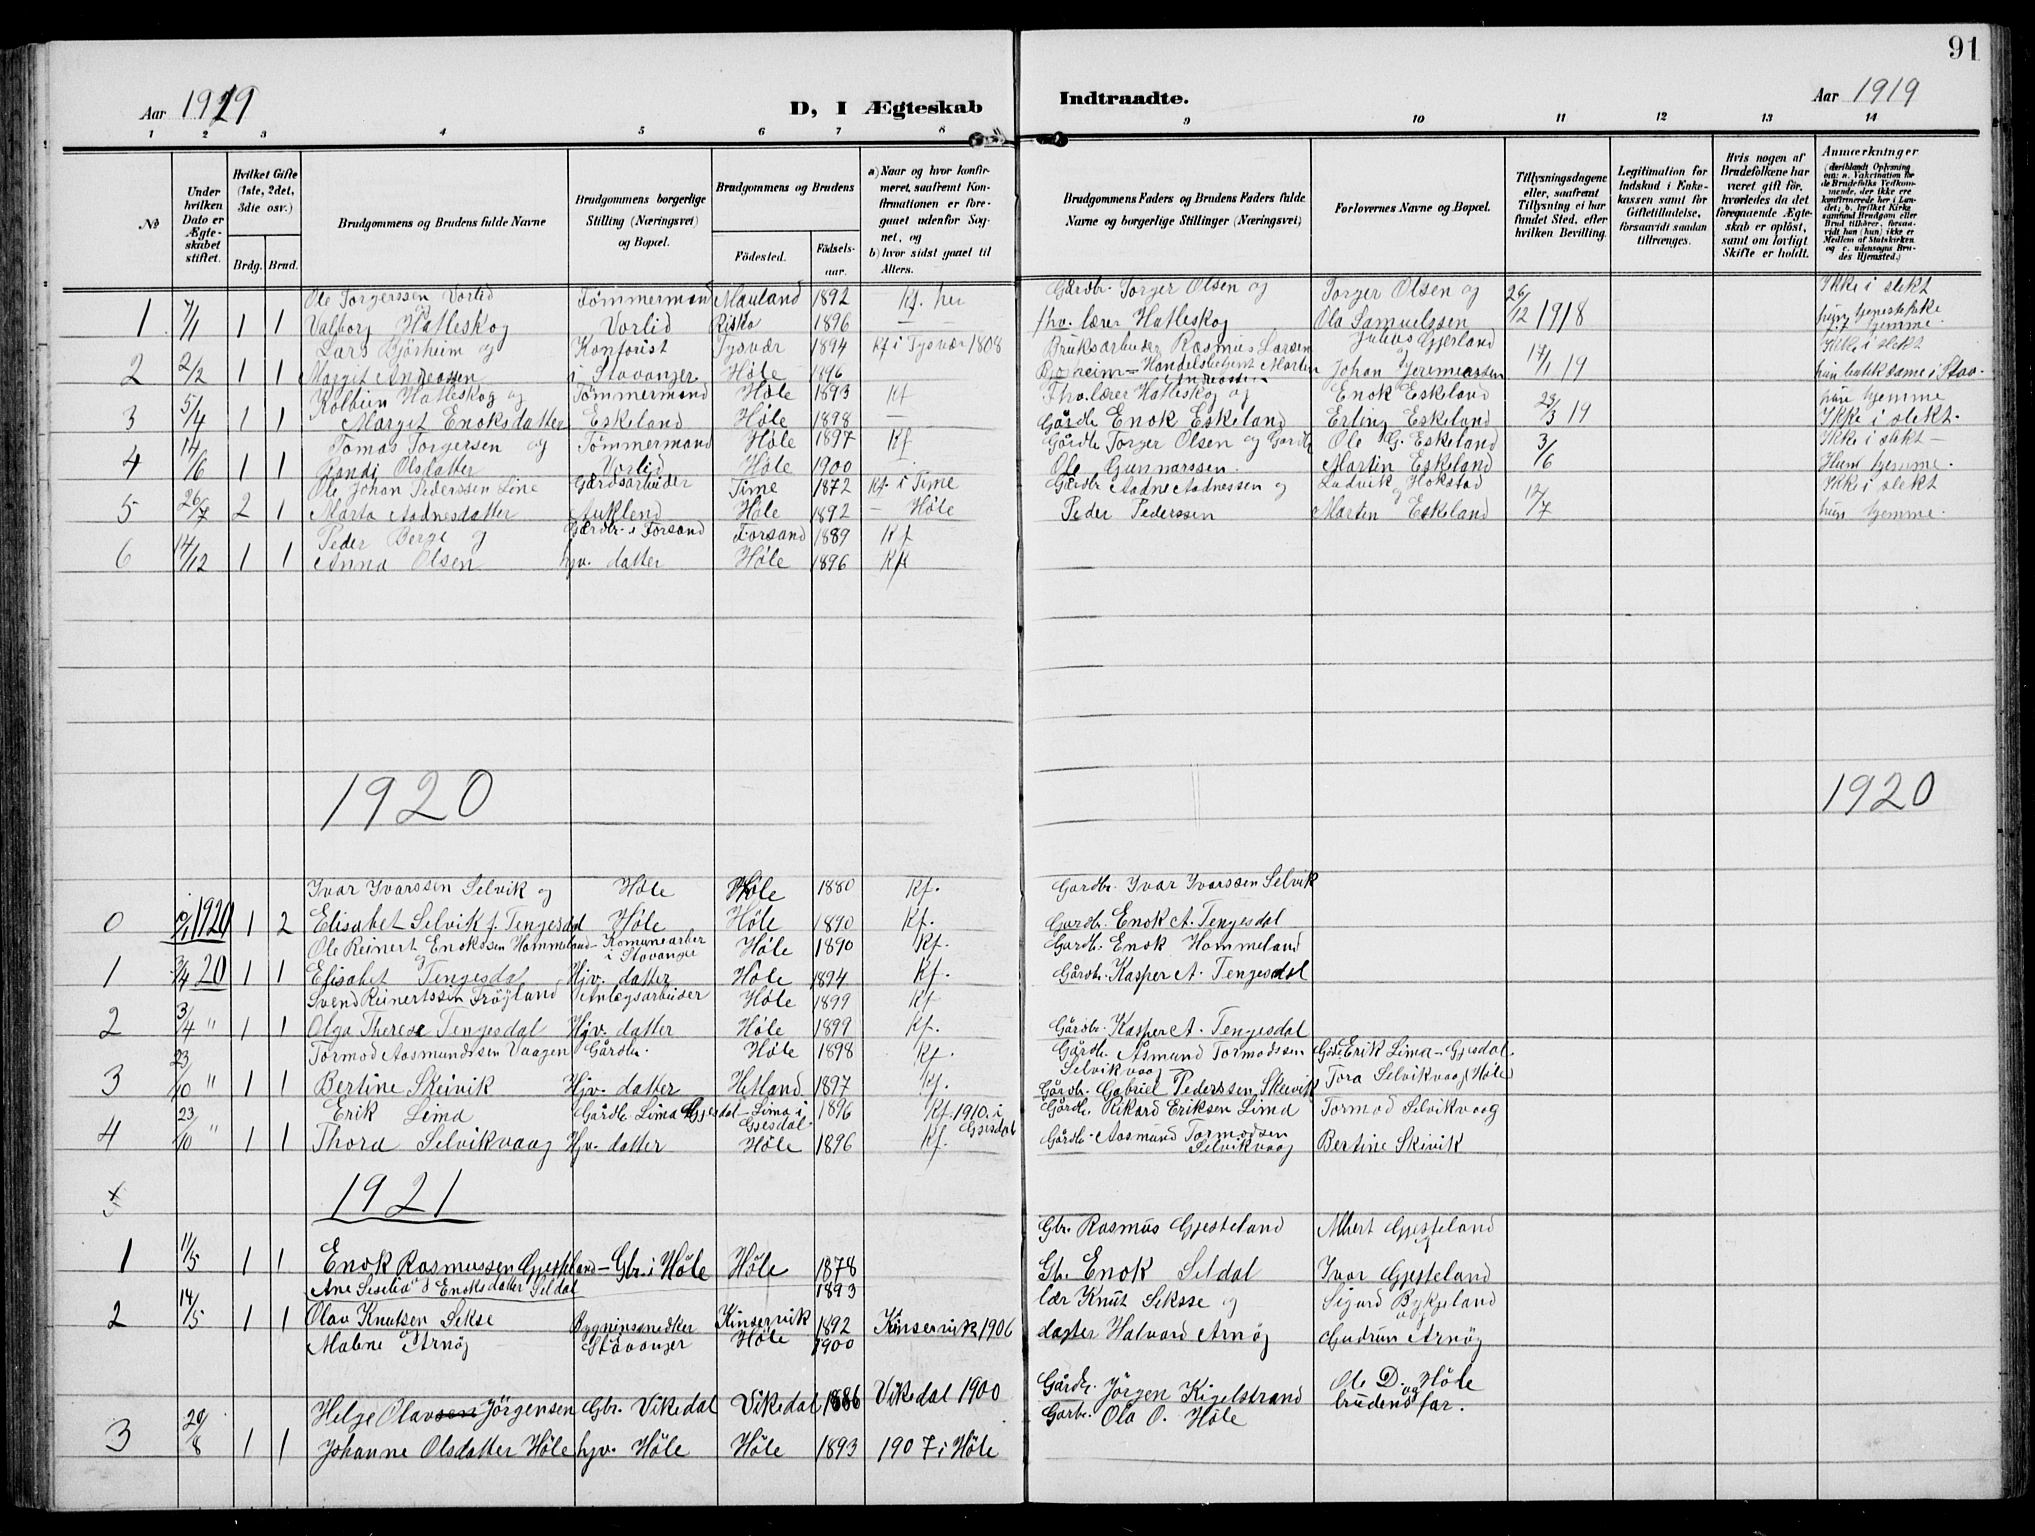 91
Aar 1919 D, I Ægteskab Indtraadte. Aar 1919
1 2 3 4 5 6 7 8 9 10 11 12 13 14
No
Under hvilken Dato er Ægteskabet stiftet.
Hvilket Gifte (1ste, 2det, 3die osv.)
Brdg. Brud.
Brudgommens og Brudens fulde Navne
Brudgommens borgerlige Stilling (Næringsvei) og Bopæl.
Brudgommens og Brudens
Födested. Födselsaar.
a) Naar og hvor konfirmeret, saafremt Konfirmationen er foregaaet udenfor Sognet, og
b) hvor sidst gaaet til Alters.
Brudgommens Faders og Brudens Faders fulde Navne og borgerlige Stillinger (Næringsvei)
Forlovernes Navne og Bopæl.
Tillysningsdagene eller, saafremt Tillysning ei har fundet Sted, efter hvilken Bevilling.
Legitimation for Indskud i Enkekassen samt for Giftetilladelse, forsaavidt saadan tiltrænges.
Hvis nogen af Brudefolkene har været gift för, hvorledes da det foregaaende Ægteskab er oplöst, samt om lovligt Skifte er holdt.
Anmærkninger
Ole Torgerssen Vorlid Tömmermand Mauland 1892 Kf. her Gårdbr. Torger Olsen og Torger Olsen og 26/12 1918 Ikke i slekt
1 7/1 1 1 Valborg Hatleskog Vorlid Riska 1896 — fhv. lærer Hatleskog Ola Samuelssen hjemme.
Lars Björheim og Kontorist Tysvær 1894 Kf i Tysvær 1808 Bruksarbeider Rasmus Larsen Julius Gjerland Ikke i slekt
2 2/2 1 1 Margit Andreassen i Stavanger Høle 1896 Handelsbetjent Martin Andreassen Johan Jeremiassen 14/1 19 hun butikdame i Stav.
Kolbein Hatleskog og Tömmermand Høle 1893 Kf Fhv. lærer Hatleskog og Enok Eskeland hun hjemme
3 5/4 1 1 Margit Enoksdatter Eskeland Høle 1898 — Gårdb Enok Eskeland Erling Eskeland 23/3 19 Ikke i slekt.
Tomas Torgersen og Tømmermand Høle 1897 Kf Gårdb Torger Olsen og Gardb Ole G. Eskeland 3/6 Ikke i slekt —
4 14/6 1 1 Gandi Olsdatter Vorlid Høle 1900 Ole Gunnarssen. Martin Eskeland Hun hjemme.
Ole Johan Pederssen Line Gårdsarbeider Time 1872 Kf. i Time Gårdbr. Aadne Aadnessen og Ludvik Hokstad og 12/7 Ikke i slekt
5 26/7 2 1 Marta Aadnesdatter Auklend Høle 1892 — Høle Peder Pederssen Martin Eskeland hun hjemme.
Peder Berge og Gårdbr. i Forsand Forsand 1889 Kf
6 14/12 1 1 Anna Olsen hjv. datter Høle 1896 Kf
1920 1920
Ivar Ivarssen Selvik og Høle Høle 1880 Kf. Gardbr. Ivar Ivarssen Selvik
0 1920 1 2 Elisabet Selvik f. Tengesdal Høle Høle 1890 Kf. Gardb. Enok A. Tengesdal
Ole Reinert Enokssen Hommeland Komunearber i Stavanger Høle 1890 Kf. Gardb. Enok Hommeland
1 3/4 20 1 1 Elisabet Tengesdal Hjv. datter Høle 1894 Kf. Gårdbr. Kasper A. Tengesdal
Svend Reinertssen Frøyland Anlegsarbeider Høle 1899 Kf
2 3/4 " 1 1 Olga Therese Tengesdal Hjv. datter Høle 1899 Kf. Gårdbr. Kasper A. Tengesdal
Tormod Aasmundssen Vaagen Gårdbr. Høle 1898 Kf. Gårdb. Åsmund Tormodssen Selvikvaag Gdb Erik Lima — Gjesdal.
3 23/10 " 1 1 Bertine Skeivik Hjv. datter Hetland 1897 Kf. Gårdbr. Gabriel Pederssen Skeivik Tora Selvikvaag (Høle)
Erik Lima Gårdb. Lima Gjesdal — Lima i Gjesdal. 1896 Kf. 1910. i Gjesdal Gårdb. Rikard Eriksen Lima Tormod Selvikvaag
4 23/10 " 1 1 Thora Selvikvaag Hjv. datter Høle 1896 Kf. Gårdb. Aasmund Tormodsen Selvikvaag Bertine Skivik
1921
Gbr. Rasmus Gjesteland Albert Gjesteland
1 11/5 1 1 Enok Rasmussen Gjesteland — Gbr. i Höle Höle 1878 Gb. Enok Seldal Ivar Gjesteland
Ane Siselia Enoksdatter Seldal 1893
2 14/5 1 1 Olav Knutsen Sekse Bygninsnedker Kinservik 1892 Kinservik 1906 lær Knut Seksse og Sigurd Bykjeland
Malene Arnøy Stavanger Höle 1900 Halvard Arnöy Gudrun Arnöy
Helge Olavsen Jörgensen Gbr. Vikedal Vikedal 1886 Vikedal 1900 Gårdb. Jörgen Kigelstrand Ole D. Höle og
3 20/8 1 1 Johanne Olsdatter Höle hjv. Höle Höle 1893 1907 i Höle Garbr. Ola O. Höle brudens far.